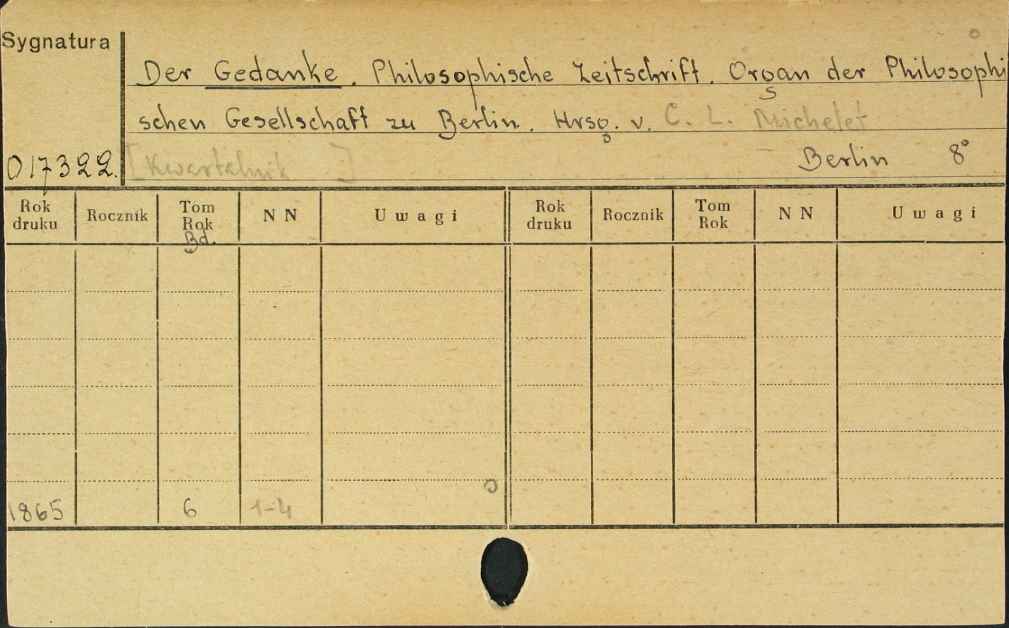 Sygnatura
Der Gedanke. Philosophische Zeitschrift. Organ der Philosophi
schen Gesellschaft zu Berlin. Hrsg. v. C. L. Michelet
017322. [Kwartalnik ] Berlin 8°
Rok druku Rocznik Tom Rok Bd. NN Uwagi Rok druku Rocznik Tom Rok NN Uwagi
1865 6 1-4